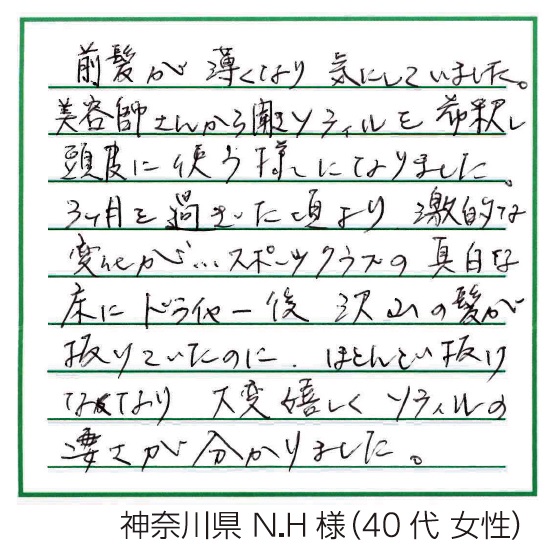 前髪が薄くなり気にしていました。
美容師さんから聞きソティルを希釈し
頭皮に使う様にになりました。
3ヶ月を過ぎた頃より激的な
変化が…スポーツクラブの真白な
床にドライヤー後沢山の髪が
抜けていたのに、ほとんどい抜け
なくなり大変嬉しくソティルの
凄さが分かりました。
神奈川県 N.H 様(40代 女性)